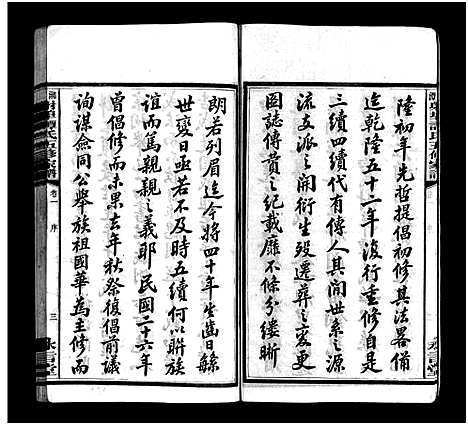 陸初年先哲提倡初修其法畧備
迄乾隆五十二年復行重修自是
三續四續代有傳人其間世系之源
流支派之開衍生殁遷葬之變更
圖誌傳贊之紀載靡不條分縷晰
朗若列眉迄今將四十年生齒日緐
世變日亟不及時五續何以聨族
誼而篤親親之義耶民國二十六年
曾倡修而未果去年秋祭復倡前議
詢謀僉同公舉族祖國華為主修而
卷一
序
三